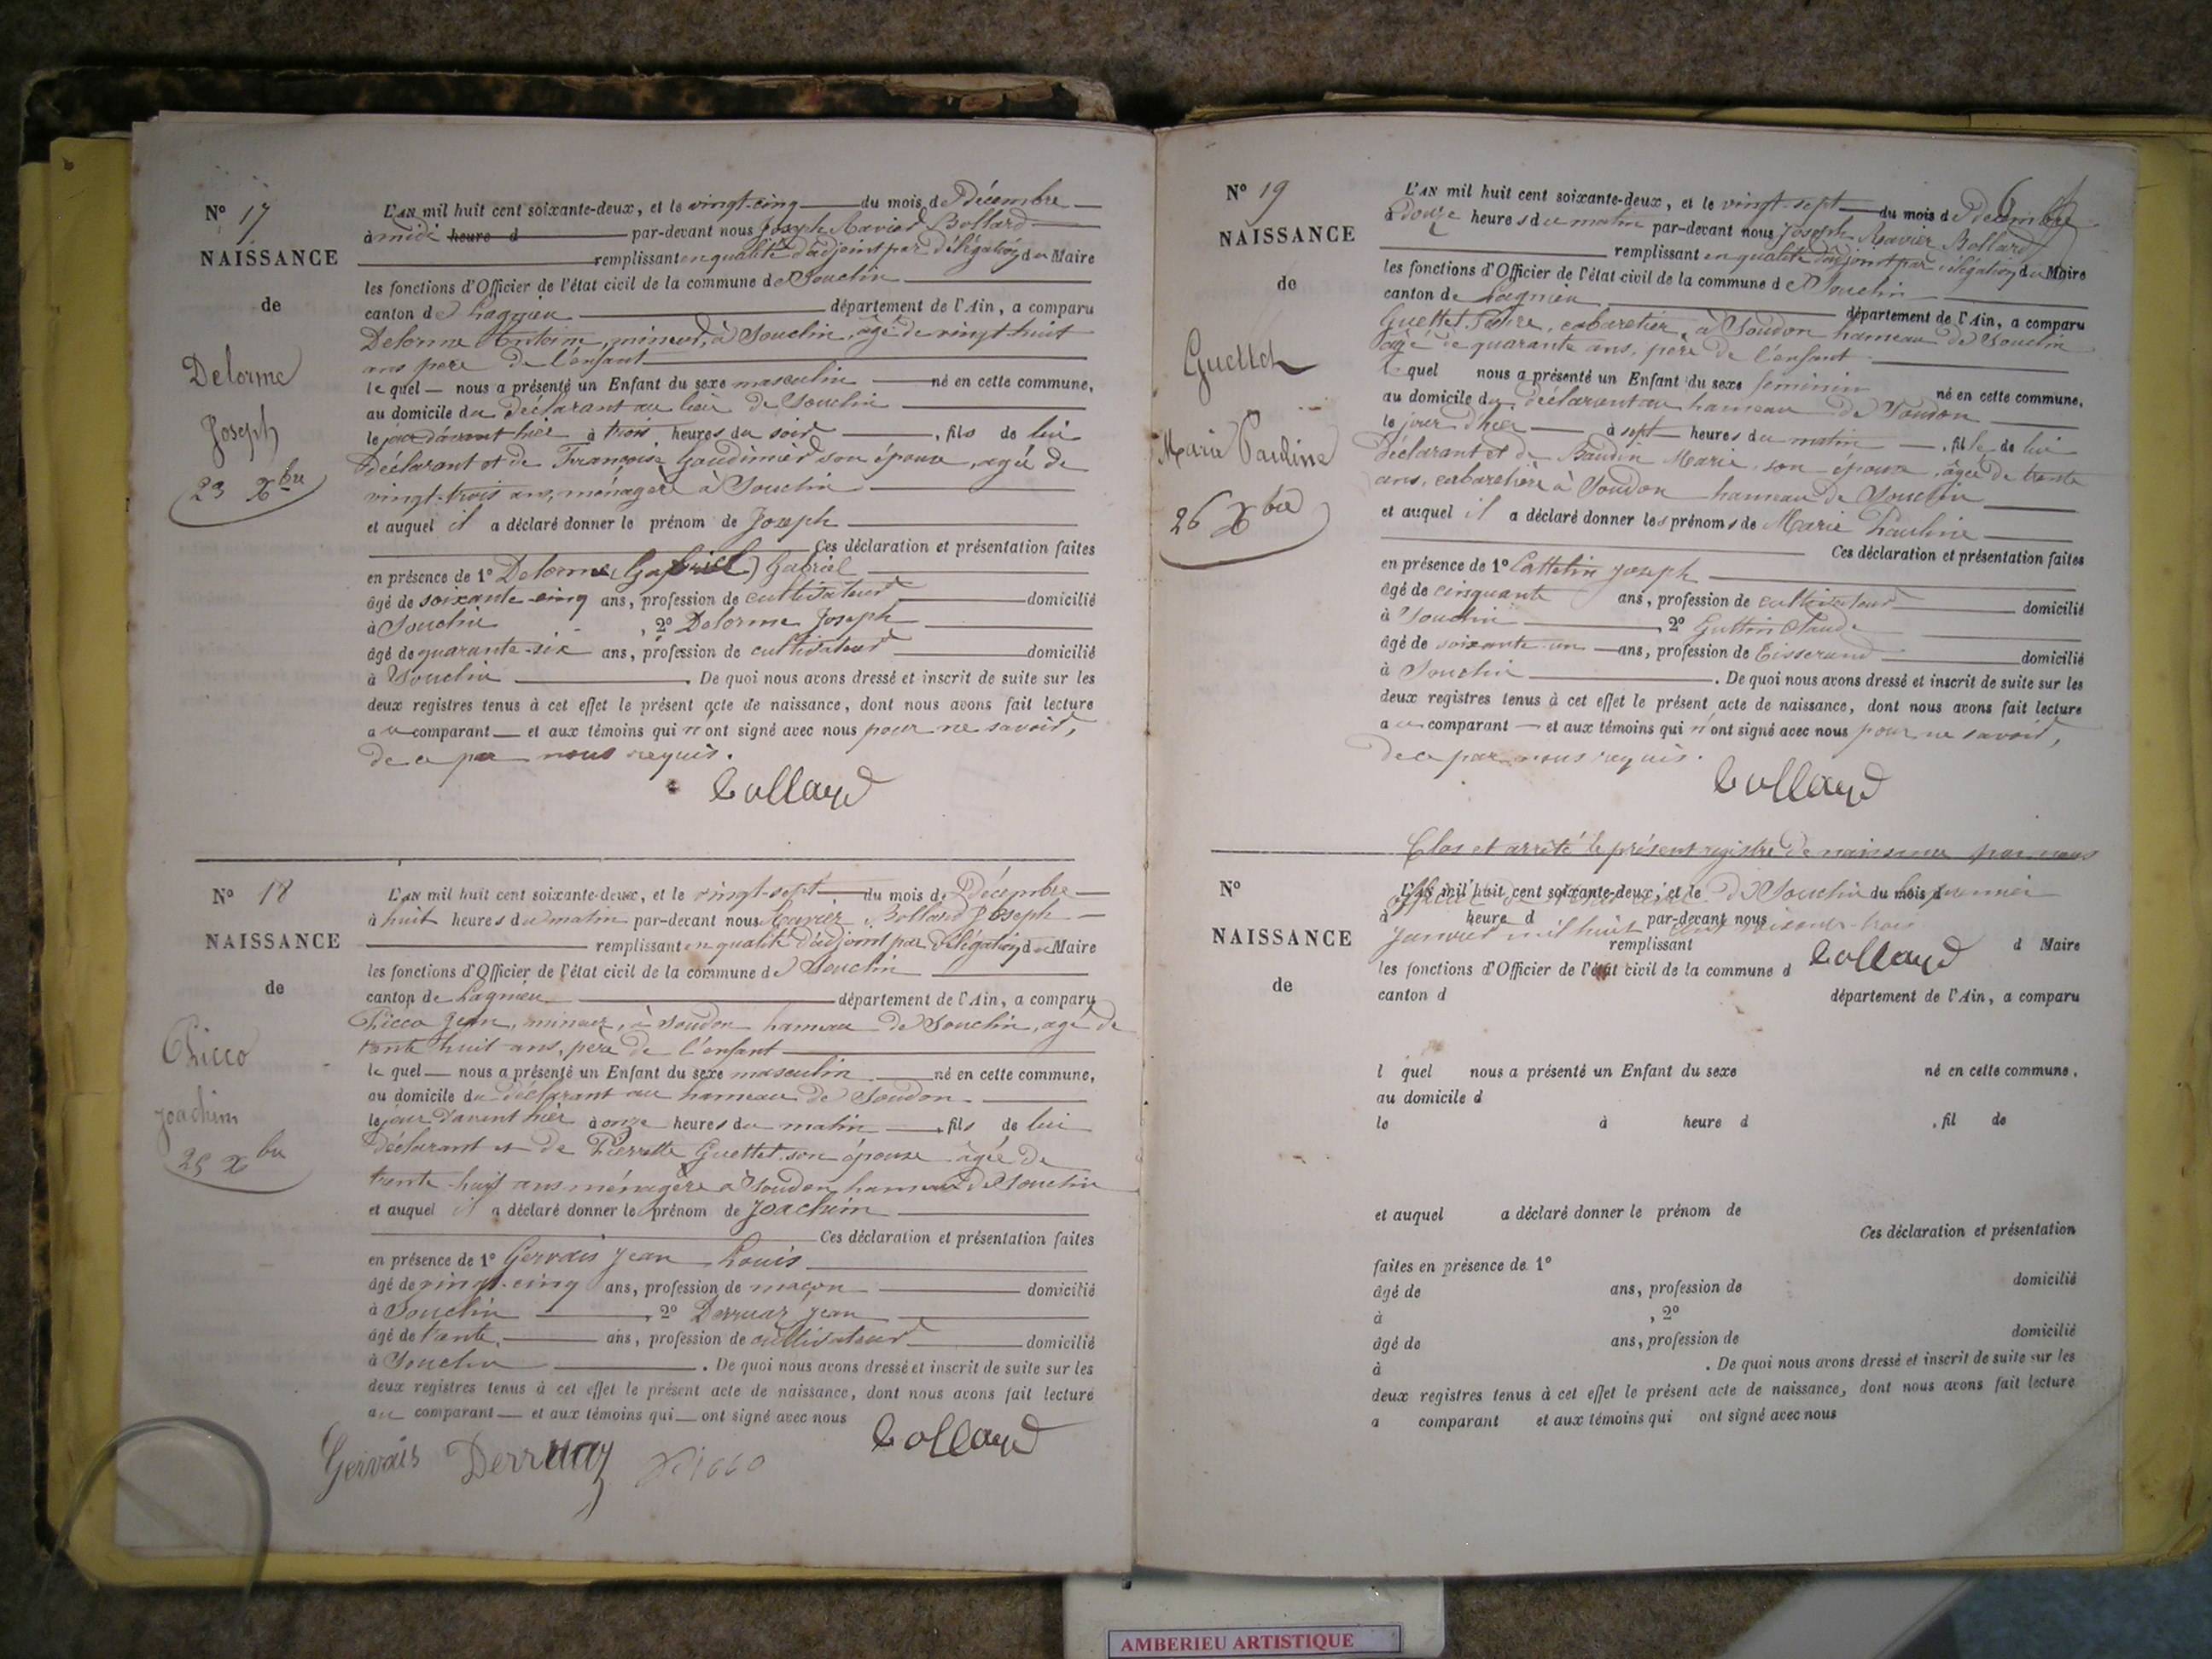 N° 17
NAISSANCE
de
Delorme
Joseph
23 Xbre
L'AN mil huit cent soixante-deux, et le vingt-cinq du mois de Décembre
à midi heure d par-devant nous Joseph Xavier Bollard
remplissant en qualité d'adjoint par délégation du Maire
les fonctions d'Officier de l'état civil de la commune de Souclin
canton de Lagnieu département de l'Ain, a comparu
Delorme Antoine, mineur, à Souclin, âgé de vingt huit
ans père de l'enfant
le quel nous a présenté un Enfant du sexe masculin né en cette commune,
au domicile du déclarant au lieu de Souclin
le jour d'avant hier à trois heures du soir , fils de lui
déclarant et de Françoise Gaudinier son épouse, agée de
vingt-trois ans, ménagère à Souclin
et auquel il a déclaré donner le prénom de Joseph
Ces déclaration et présentation faites
en présence de 1° Delorme (Gabriel) Gabriel
âgé de soixante cinq ans, profession de cultivateur domicilié
à Souclin , 2° Delorme Joseph
âgé de quarante-six ans, profession de cultivateur domicilié
à Souclin . De quoi nous avons dressé et inscrit de suite sur les
deux registres tenus à cet effet le présent acte de naissance, dont nous avons fait lecture
au comparant et aux témoins qui n'ont signé avec nous pour ne savoir,
de ce par nous requis.
Bollard
N° 18
NAISSANCE
de
Picco
Joachim
25 Xbre
L'AN mil huit cent soixante-deux, et le vingt-sept du mois de Décembre
à huit heures du matin par-devant nous Xavier Bollard Joseph
remplissant en qualité d'adjoint par délégation du Maire
les fonctions d'Officier de l'état civil de la commune de Souclin
canton de Lagnieu département de l'Ain, a comparu
Picco Jean, mineur, à Soudon hameau de Souclin, agé de
trente huit ans, père de l'enfant
le quel nous a présenté un Enfant du sexe masculin né en cette commune,
au domicile du déclarant au hameau de Soudon
le jour d'avant hier à onze heures du matin , fils de lui
déclarant et de Pierrette Guettet son épouse âgée de
trente-huit ans ménagère à Soudon hameau de Souclin
et auquel il a déclaré donner le prénom de Joachim
Ces déclaration et présentation faites
en présence de 1° Gervais Jean Louis
âgé de vingt-cinq ans, profession de maçon domicilié
à Souclin , 2° Derruaz Jean
âgé de trente ans, profession de cultivateur domicilié
à Souclin . De quoi nous avons dressé et inscrit de suite sur les
deux registres tenus à cet effet le présent acte de naissance, dont nous avons fait lecture
au comparant et aux témoins qui ont signé avec nous
Bollard
Gervais Derruaz Picco
N° 19
NAISSANCE
de
Guettet
Marie Pauline
26 Xbre
L'AN mil huit cent soixante-deux, et le vingt-sept du mois de Décembre
à douze heures du matin par-devant nous Joseph Xavier Bollard
remplissant en qualité d'adjoint par délégation du Maire
les fonctions d'Officier de l'état civil de la commune de Souclin
canton de Lagnieu département de l'Ain, a comparu
Guettet Pierre, cabaretier, à Soudon hameau de Souclin
âgé de quarante ans, père de l'enfant
le quel nous a présenté un Enfant du sexe feminin né en cette commune,
au domicile du déclarant au hameau de Soudon
le jour d'hier à sept heures du matin , fille de lui
déclarant et de Baudin Marie, son épouse, âgée de trente
ans, cabaretière à Soudon hameau de Souclin
et auquel il a déclaré donner les prénoms de Marie Pauline
Ces déclaration et présentation faites
en présence de 1° Cattelin Joseph
âgé de cinquante ans, profession de cultivateur domicilié
à Souclin , 2° Guttin Claude
âgé de soixante-un ans, profession de Tisserand domicilié
à Souclin . De quoi nous avons dressé et inscrit de suite sur les
deux registres tenus à cet effet le présent acte de naissance, dont nous avons fait lecture
au comparant et aux témoins qui n'ont signé avec nous pour ne savoir,
de ce par nous requis.
Bollard
Clos et arrêté le présent registre de naissance par nous
officier de l'état civil de Souclin le premier
janvier mil huit cent soixante-trois
Bollard
N°
NAISSANCE
de
L'AN mil huit cent soixante-deux, et le du mois d
à heure d par-devant nous
remplissant d Maire
les fonctions d'Officier de l'état civil de la commune d
canton d département de l'Ain, a comparu
l quel nous a présenté un Enfant du sexe né en cette commune,
au domicile d
le à heure d , fil de
et auquel a déclaré donner le prénom de
Ces déclaration et présentation
faites en présence de 1°
âgé de ans, profession de domicilié
à , 2°
âgé de ans, profession de domicilié
à . De quoi nous avons dressé et inscrit de suite sur les
deux registres tenus à cet effet le présent acte de naissance, dont nous avons fait lecture
a comparant et aux témoins qui ont signé avec nous
AMBERIEU ARTISTIQUE